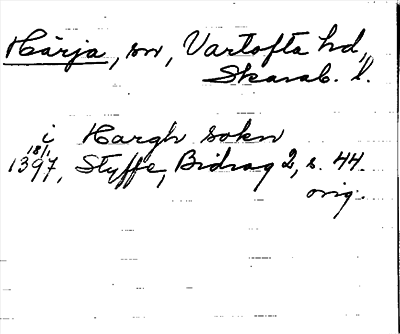 Härja, sn, Vartofta hd,
Skarab. l.
i Hargh sokn
18/1
1397, Styffe, Bidrag 2, s. 44.
orig.